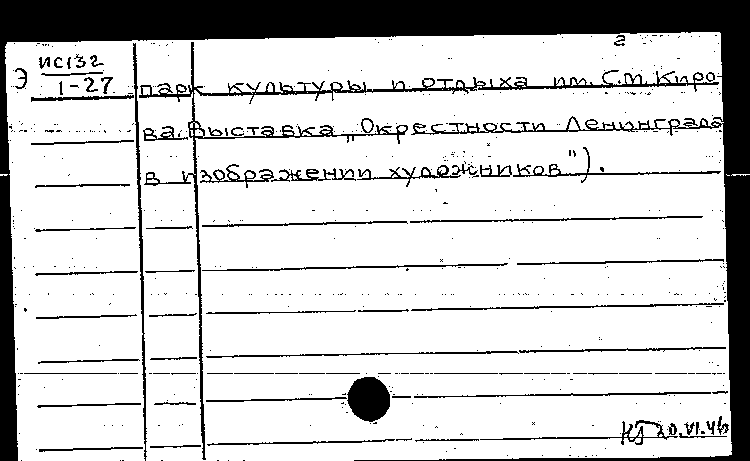 2
Э ИС132
1-27
парк культуры и отдыха им. С.М. Киро-
ва. Выставка „Окрестности Ленинграда
в изображении художников").
20.VI.46